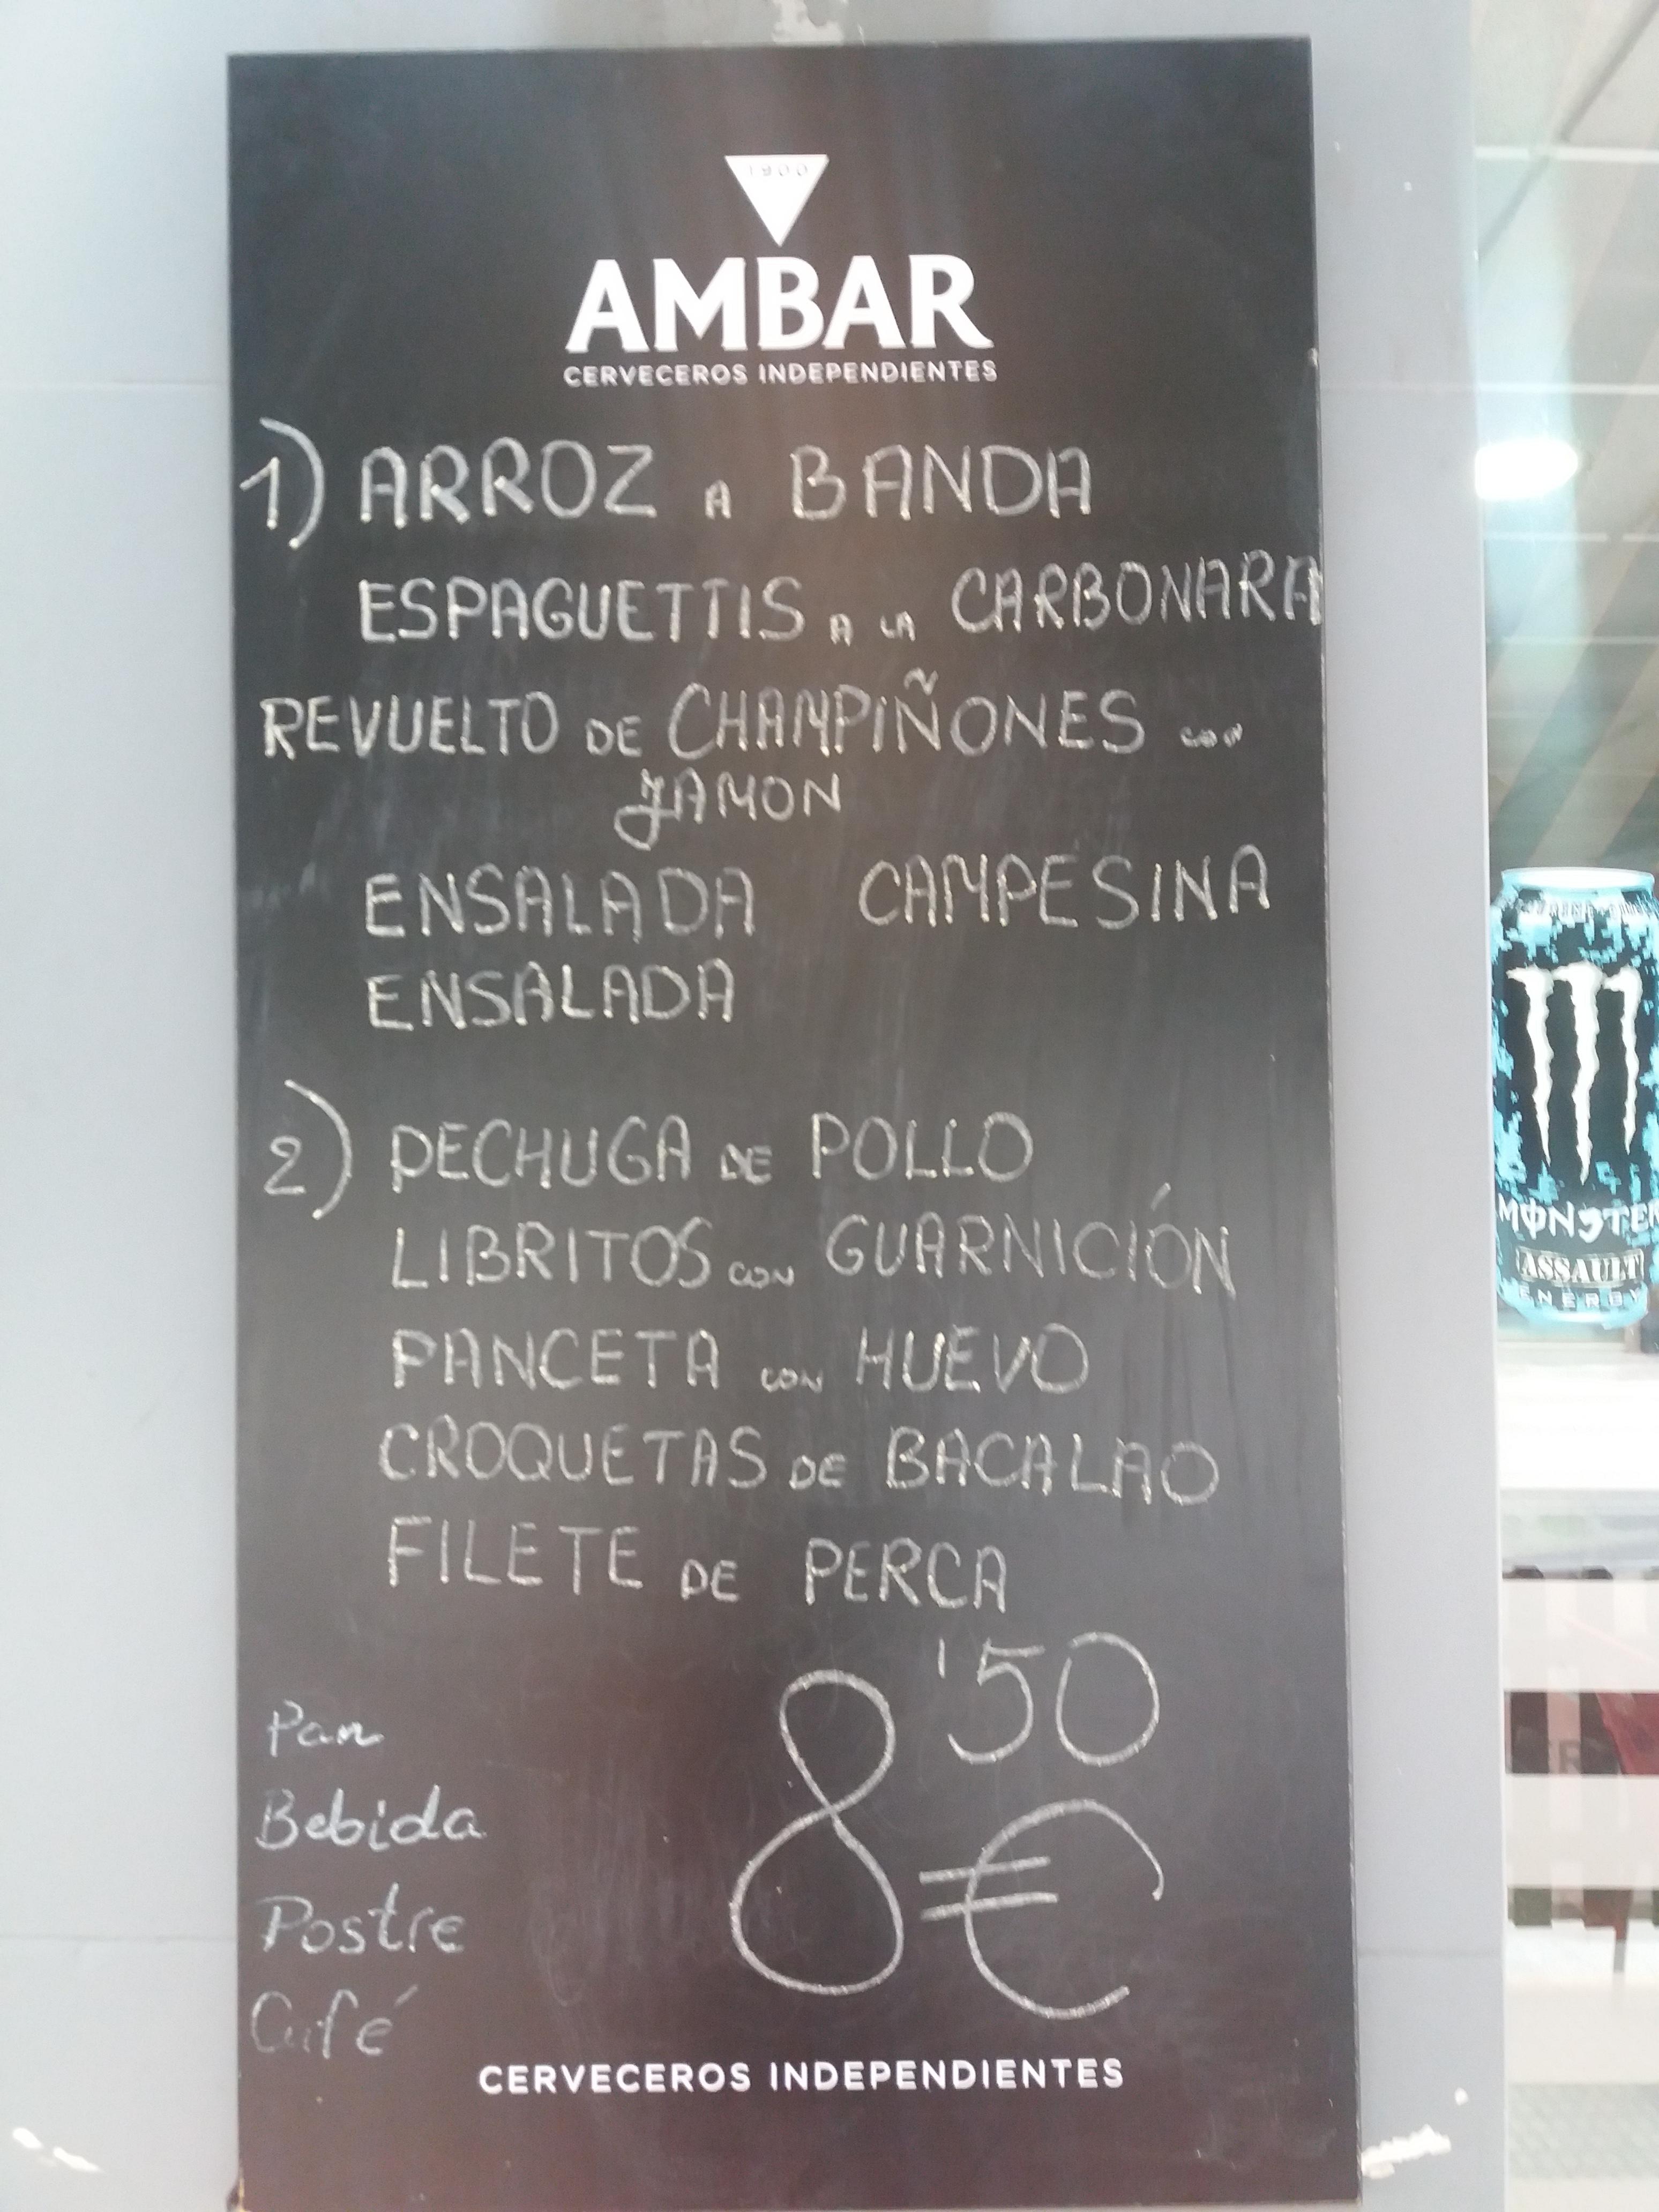 1900
AMBAR
CERVECEROS INDEPENDIENTES
1) ARROZ A BANDA
ESPAGUETTIS A LA CARBONARA
REVUELTO DE CHAMPIÑONES con
JAMON
ENSALADA CAMPESINA
ENSALADA
2) PECHUGA DE POLLO
LIBRITOS con GUARNICIÓN
PANCETA con HUEVO
CROQUETAS DE BACALAO
FILETE DE PERCA
8'50 €
Pan
Bebida
Postre
Café
CERVECEROS INDEPENDIENTES
MONSTER
ASSAULT
ENERGY